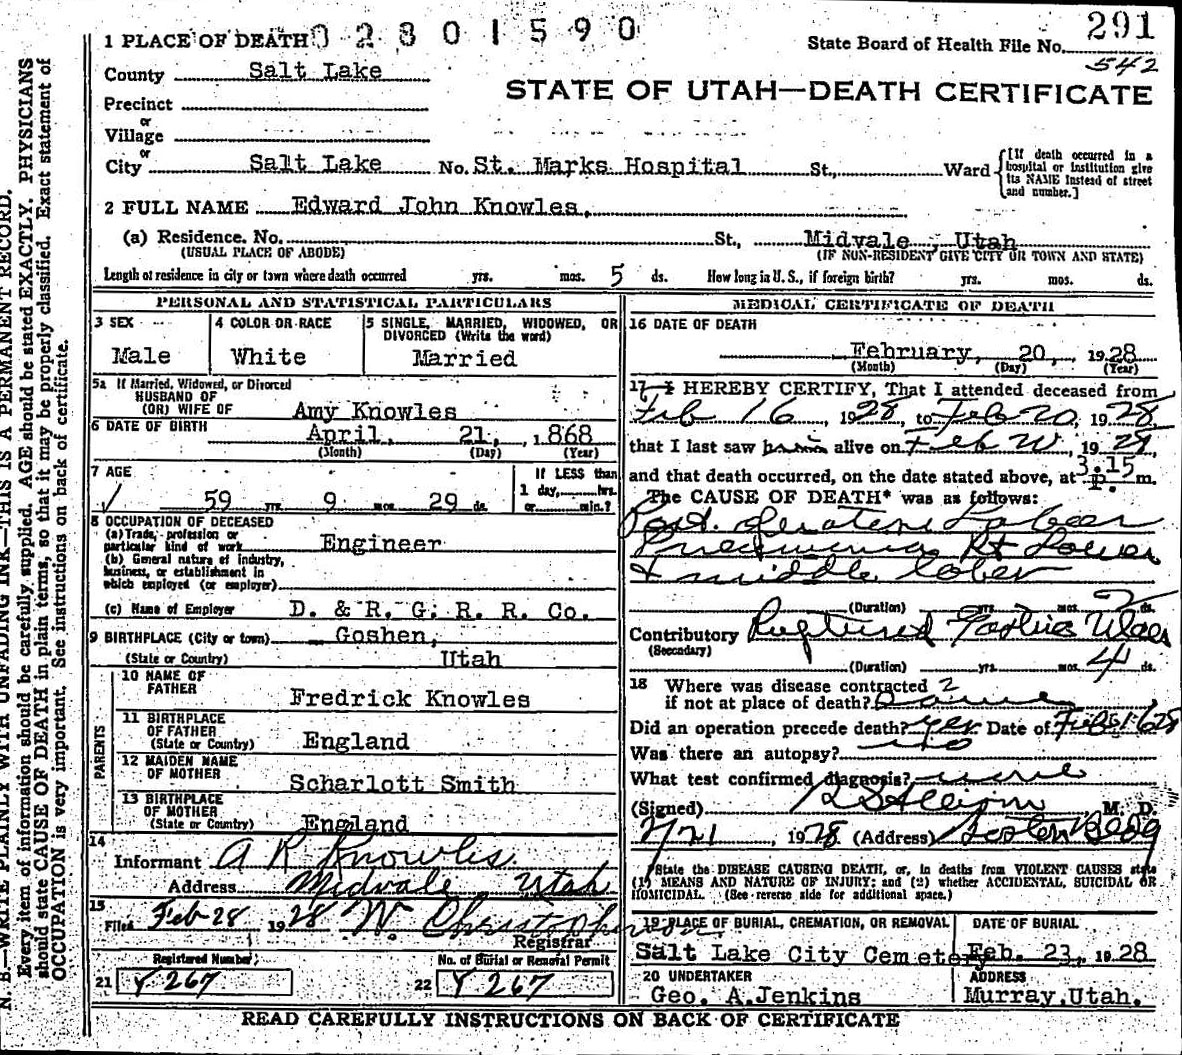 291
1 PLACE OF DEATH 0 2 8 0 1 5 9 0
State Board of Health File No.
542
County Salt Lake
STATE OF UTAH—DEATH CERTIFICATE
Precinct
or
Village
or
City Salt Lake No. St. Marks Hospital St., Ward
[If death occurred in a hospital or institution give its NAME instead of street and number.]
2 FULL NAME Edward John Knowles,
(a) Residence. No. St., Midvale, Utah
(USUAL PLACE OF ABODE) (IF NON-RESIDENT GIVE CITY OR TOWN AND STATE)
Length of residence in city or town where death occurred yrs. mos. 5 ds. How long in U. S., if foreign birth? yrs. mos. ds.
PERSONAL AND STATISTICAL PARTICULARS
3 SEX
Male
4 COLOR OR RACE
White
5 SINGLE, MARRIED, WIDOWED, OR
DIVORCED (Write the word)
Married
5a If Married, Widowed, or Divorced
HUSBAND OF
(OR) WIFE OF Amy Knowles
6 DATE OF BIRTH April, 21, 1868
(Month) (Day) (Year)
7 AGE
59 yrs. 9 mos. 29 ds.
If LESS than
1 day, hrs.
or min.?
8 OCCUPATION OF DECEASED
(a) Trade, profession or
particular kind of work Engineer
(b) General nature of industry,
business, or establishment in
which employed (or employer)
(c) Name of Employer D. & R. G. R. R. Co.
9 BIRTHPLACE (City or town) Goshen,
(State or Country) Utah
PARENTS
10 NAME OF
FATHER Fredrick Knowles
11 BIRTHPLACE
OF FATHER
(State or Country) England
12 MAIDEN NAME
OF MOTHER Scharlott Smith
13 BIRTHPLACE
OF MOTHER
(State or Country) England
14
Informant A R Knowles
Address Midvale Utah
15
Filed Feb 28 1928 W. Christopherson
Registrar
Registered Number No. of Burial or Removal Permit
21 Y 267 22 Y 267
MEDICAL CERTIFICATE OF DEATH
16 DATE OF DEATH
February, 20, 1928
(Month) (Day) (Year)
17 I HEREBY CERTIFY, That I attended deceased from
Feb 16, 1928, to Feb 20, 1928
that I last saw him alive on Feb 20, 1928,
and that death occurred, on the date stated above, at 3.15 P. m.
The CAUSE OF DEATH* was as follows:
Post. Lobar
Pneumonia Rt Lower
& middle lobes
(Duration) yrs. mos. 2 ds.
Contributory Ruptured Gastric Ulcer
(Secondary)
(Duration) yrs. mos. 4 ds.
18 Where was disease contracted
if not at place of death? ?
Did an operation precede death? yes Date of Feb 16 28
Was there an autopsy? no
What test confirmed diagnosis? none
(Signed) R S Allison M. D.
2/21, 1928 (Address) Boston Bldg
*State the DISEASE CAUSING DEATH, or, in deaths from VIOLENT CAUSES state
(1) MEANS AND NATURE OF INJURY; and (2) whether ACCIDENTAL, SUICIDAL OR
HOMICIDAL. (See reverse side for additional space.)
19 PLACE OF BURIAL, CREMATION, OR REMOVAL
Salt Lake City Cemetery
DATE OF BURIAL
Feb. 23, 1928
20 UNDERTAKER
Geo. A. Jenkins
ADDRESS
Murray, Utah.
READ CAREFULLY INSTRUCTIONS ON BACK OF CERTIFICATE
N. B.—WRITE PLAINLY WITH UNFADING INK—THIS IS A PERMANENT RECORD.
Every item of information should be carefully supplied. AGE should be stated EXACTLY. PHYSICIANS
should state CAUSE OF DEATH in plain terms, so that it may be properly classified. Exact statement of
OCCUPATION is very important. See instructions on back of certificate.